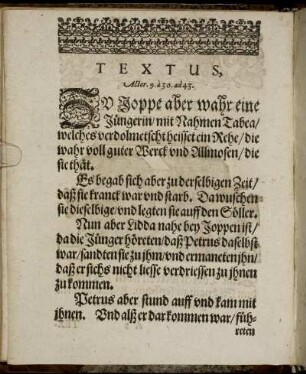 TEXTUS,
Actor. 9. à 30. ad 43.
ZV Joppe aber wahr eine
Jüngerin/ mit Nahmen Tabea/
welches verdolmetscht heisset ein Rehe/ die
wahr voll guter Werck vnd Allmosen/ die
sie thät.
Es begab sich aber zu derselbigen Zeit/
daß sie kranck war vnd starb. Da wuschen
sie dieselbige/ vnd legten sie auff den Söller.
Nun aber Lidda nahe bey Joppen ist/
da die Jünger höreten/ daß Petrus daselbst
war/ sandten sie zu jhm/ vnd ermaneten jhn/
daß er sichs nicht liesse verdriessen zu jhnen
zu kommen.
Petrus aber stund auff vnd kam mit
jhnen. Vnd alß er dar kommen war/ füh-
reten